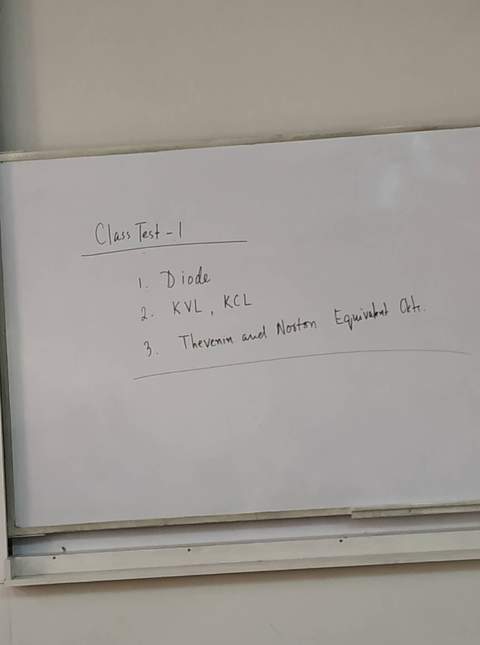 Class Test - 1
1. Diode
2. KVL, KCL
3. Thevenin and Norton Equivalent Ckts.